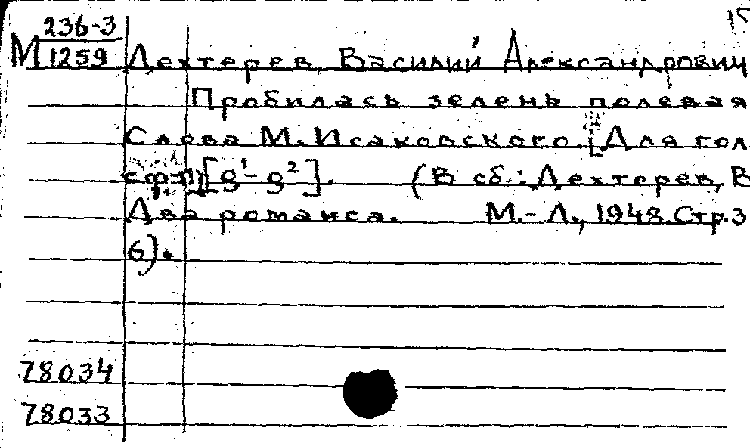 15
236-3
М 1259 Дехтерев, Василий Александрович
Пробилась зелень полевая
Слова М. Исаковского. [Для гол.
с ф-п] [g¹-g²]. (В сб.: Дехтерев, В
Два романса. М.-Л., 1948. Стр. 3
6).
78034
78033